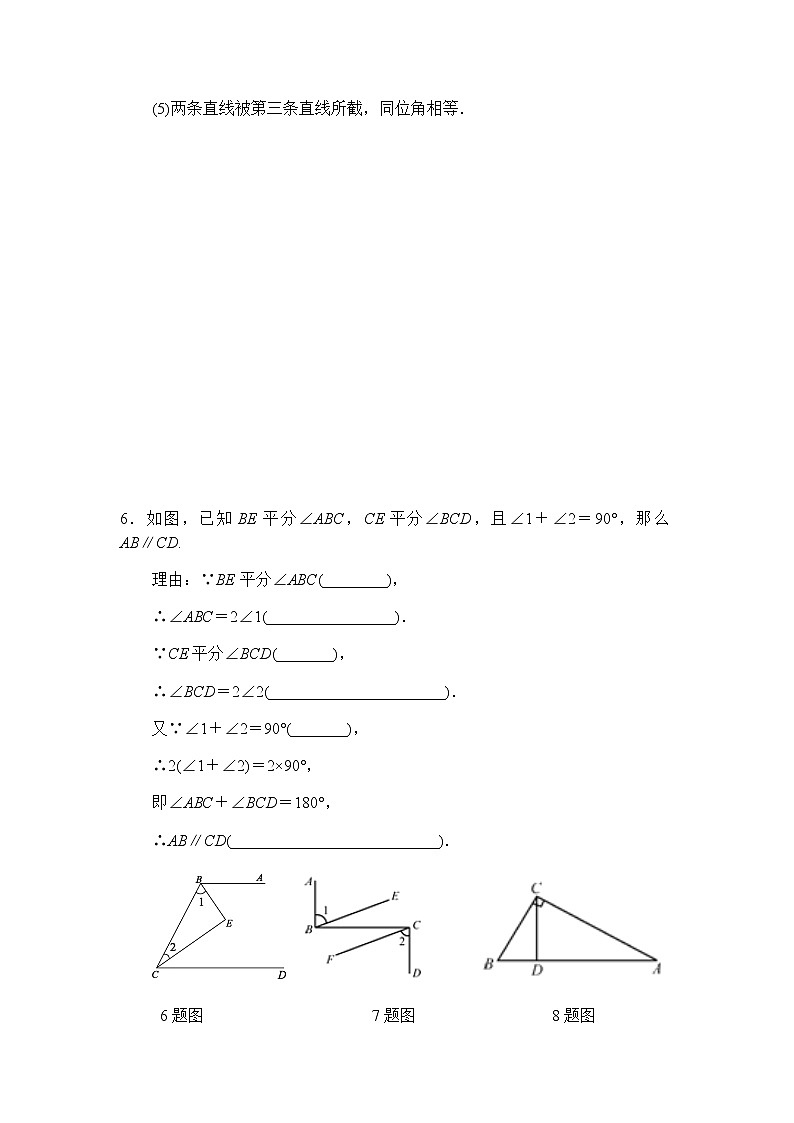 (5)两条直线被第三条直线所截，同位角相等．
6．如图，已知 BE 平分∠ABC，CE 平分∠BCD，且∠1＋∠2＝90°，那么
AB∥CD.
理由：∵BE 平分∠ABC(________)，
∴∠ABC＝2∠1(________________)．
∵CE平分∠BCD(_______)，
∴∠BCD＝2∠2(______________________)．
又∵∠1＋∠2＝90°(_______)，
∴2(∠1＋∠2)＝2×90°，
即∠ABC＋∠BCD＝180°，
∴AB∥CD(__________________________)．
B A
1
E
2
C D
A
E
1
B C
2
F
D
C
B D A
6题图 7题图 8题图